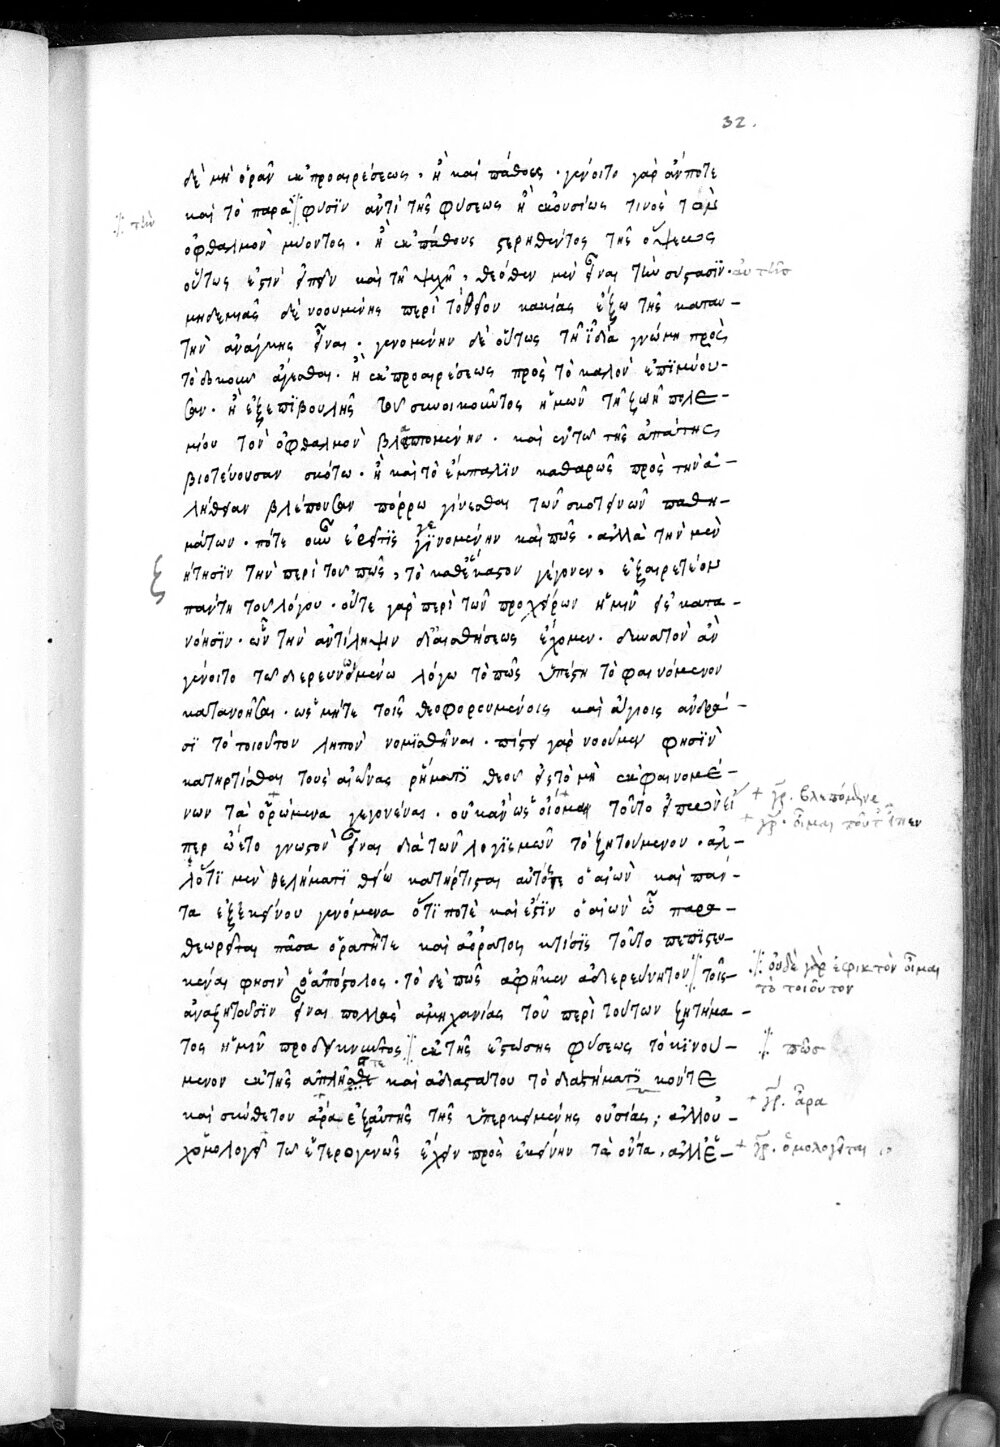 32.
δὲ μὴ ὁρᾶν ἐκ προαιρέσεως, ἢ καὶ πάθους. γένοιτο γὰρ ἄν ποτε
καὶ τὸ παρὰ φύσϊν ἀντὶ τῆς φύσεως ἢ ἑκουσίως τινὸς τὸν
ὀφθαλμὸν μύοντος. ἢ ἐκ πάθους στερηθέντος τῆς ὄψεως
οὕτως ἐστὶν εἰπεῖν καὶ τῆ ψυχῆ, θεόθεν μὲν εἶναι τὴν σύστασϊν.
μηδεμιᾶς δὲ νοουμένης περὶ τὸ θεῖον κακίας ἔξω τῆς κατ' αυ-
τὴν ἀνάγκης εἶναι. γενομένην δὲ οὕτως τῆ ἰδία γνώμη πρὸς
τὸ δοκοῦν ἄγεσθαι. ἢ ἐκ προαιρέσεως πρὸς τὸ καλὸν ἐπϊμύου-
σαν. ἢ ἐξ ἐπϊβουλῆς τοῦ συνοικοῦντος ἡμῶν τῆ ζωῆ πολε-
μίου τὸν ὀφθαλμὸν βλαπτομένην. καὶ ἐν τῶ τῆς ἀπάτης
βιοτεύουσαν σκότω. ἢ καὶ τὸ ἔμπαλϊν καθαρῶς πρὸς τὴν ἀ-
λήθειαν βλέπουσαν πόρρω γίνεσθαι τῶν σκοτεινῶν παθη-
μάτων. πότε οὖν ἐρεῖ τϊς γϊνομένην καὶ πῶς. ἀλλὰ τὴν μὲν
ζήτησϊν τὴν περὶ τοῦ πῶς, τὸ καθέκαστον γέγονεν, ἐξαιρετέον
πάντη τοῦ λόγου. οὔτε γὰρ περὶ τῶν προχείρων ἡμῖν εἰς κατα-
νόησϊν. ὧν τὴν ἀντίληψιν δι' αἰσθήσεως ἔχομεν. δυνατὸν ἂν
γένοιτο τῶ διερευνομένω λόγω τὸ πῶς ὑπέστη τὸ φαινόμενον
κατανοῆσαι. ὡς μήτε τοῖς θεοφορουμένοις καὶ ἁγίοις ἀνδρά-
σϊ τὸ τοιοῦτον ληπτὸν νομϊσθῆναι. πίστει γὰρ νοοῦμεν φησϊν
κατηρτίσθαι τοὺς αἰῶνας ῥήματϊ θεοῦ εἰς τὸ μὴ ἐκ φαινομέ-
νων τὰ ὁρώμενα γεγονέναι. οὐκ ἂν ὡς οἴομαι τοῦτο εἰπὼν εἴ
περ ὤετο γνωστὸν εἶναι διὰ τῶν λογϊσμῶν τὸ ζητούμενον. ἀλ-
λ' ὅτϊ μὲν θελήματϊ θείω κατήρτισται αὐτός τε ὁ αἰὼν καὶ πάν-
τα ἐξ ἐκείνου γενόμενα ὅτϊ ποτὲ καὶ ἔστϊν ὁ αἰὼν ὧ παρα-
θεωρεῖται πᾶσα ὁρατή τε καὶ ἀόρατος κτίσϊς τοῦτο πεπϊστευ-
κέναι φησὶν ὁ ἀπόστολος. τὸ δὲ πῶς ἀφῆκεν ἀδιερεύνητον τοῖς
ἀναζητοῦσϊν εἶναι πολλὰς ἀμηχανίας τοῦ περὶ τούτων ζητήμα-
τος ἡμῖν προδεικνύντος ἐκ τῆς ἑστώσης φύσεως τὸ κϊνού-
μενον ἐκ τῆς ἁπλῆς τε καὶ ἀδιαστάτου τὸ διαστήματϊ κόν τε
καὶ σύνθετον ἄρα ἐξ αὐτῆς τῆς ὑπερκειμένης οὐσίας; ἀλλ' οὐ-
χ ὁμολογεῖ τῶ ἑτερογενῶς ἔχειν πρὸς ἐκείνην τὰ ὄντα. ἀλλ' ἑ-
τὴν
αὐτῆς
+ γρ. βλεπόμενα
+ γρ. οἶμαι τοῦτ' εἶπεν
οὐδὲ γὰρ ἐφικτὸν οἶμαι
τὸ τοιοῦτον
πῶς
+ γρ. ἆρα
+ γρ. ὁμολογεῖται